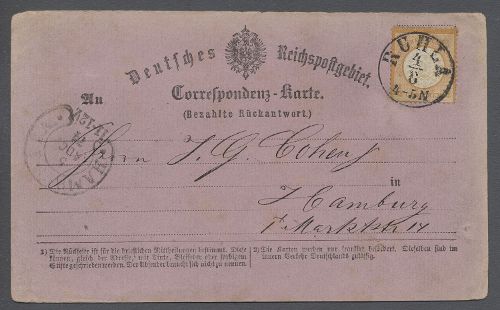 Deutsches Reichspostgebiet.
RUHLA
4/6
4-5N
An
Correspondenz-Karte.
(Bezahlte Rückantwort.)
Herrn J. G. Cohen
in
Hamburg
Marktstr 14
1) Die Rückseite ist für die brieflichen Mittheilungen bestimmt. Diese
können, gleich der Adresse, mit Tinte, Bleifeder oder farbigem
Stifte geschrieben werden. Der Absender braucht sich nicht zu nennen.
2) Die Karten werden nur frankirt befördert. Dieselben sind im
innern Verkehr Deutschlands zulässig.